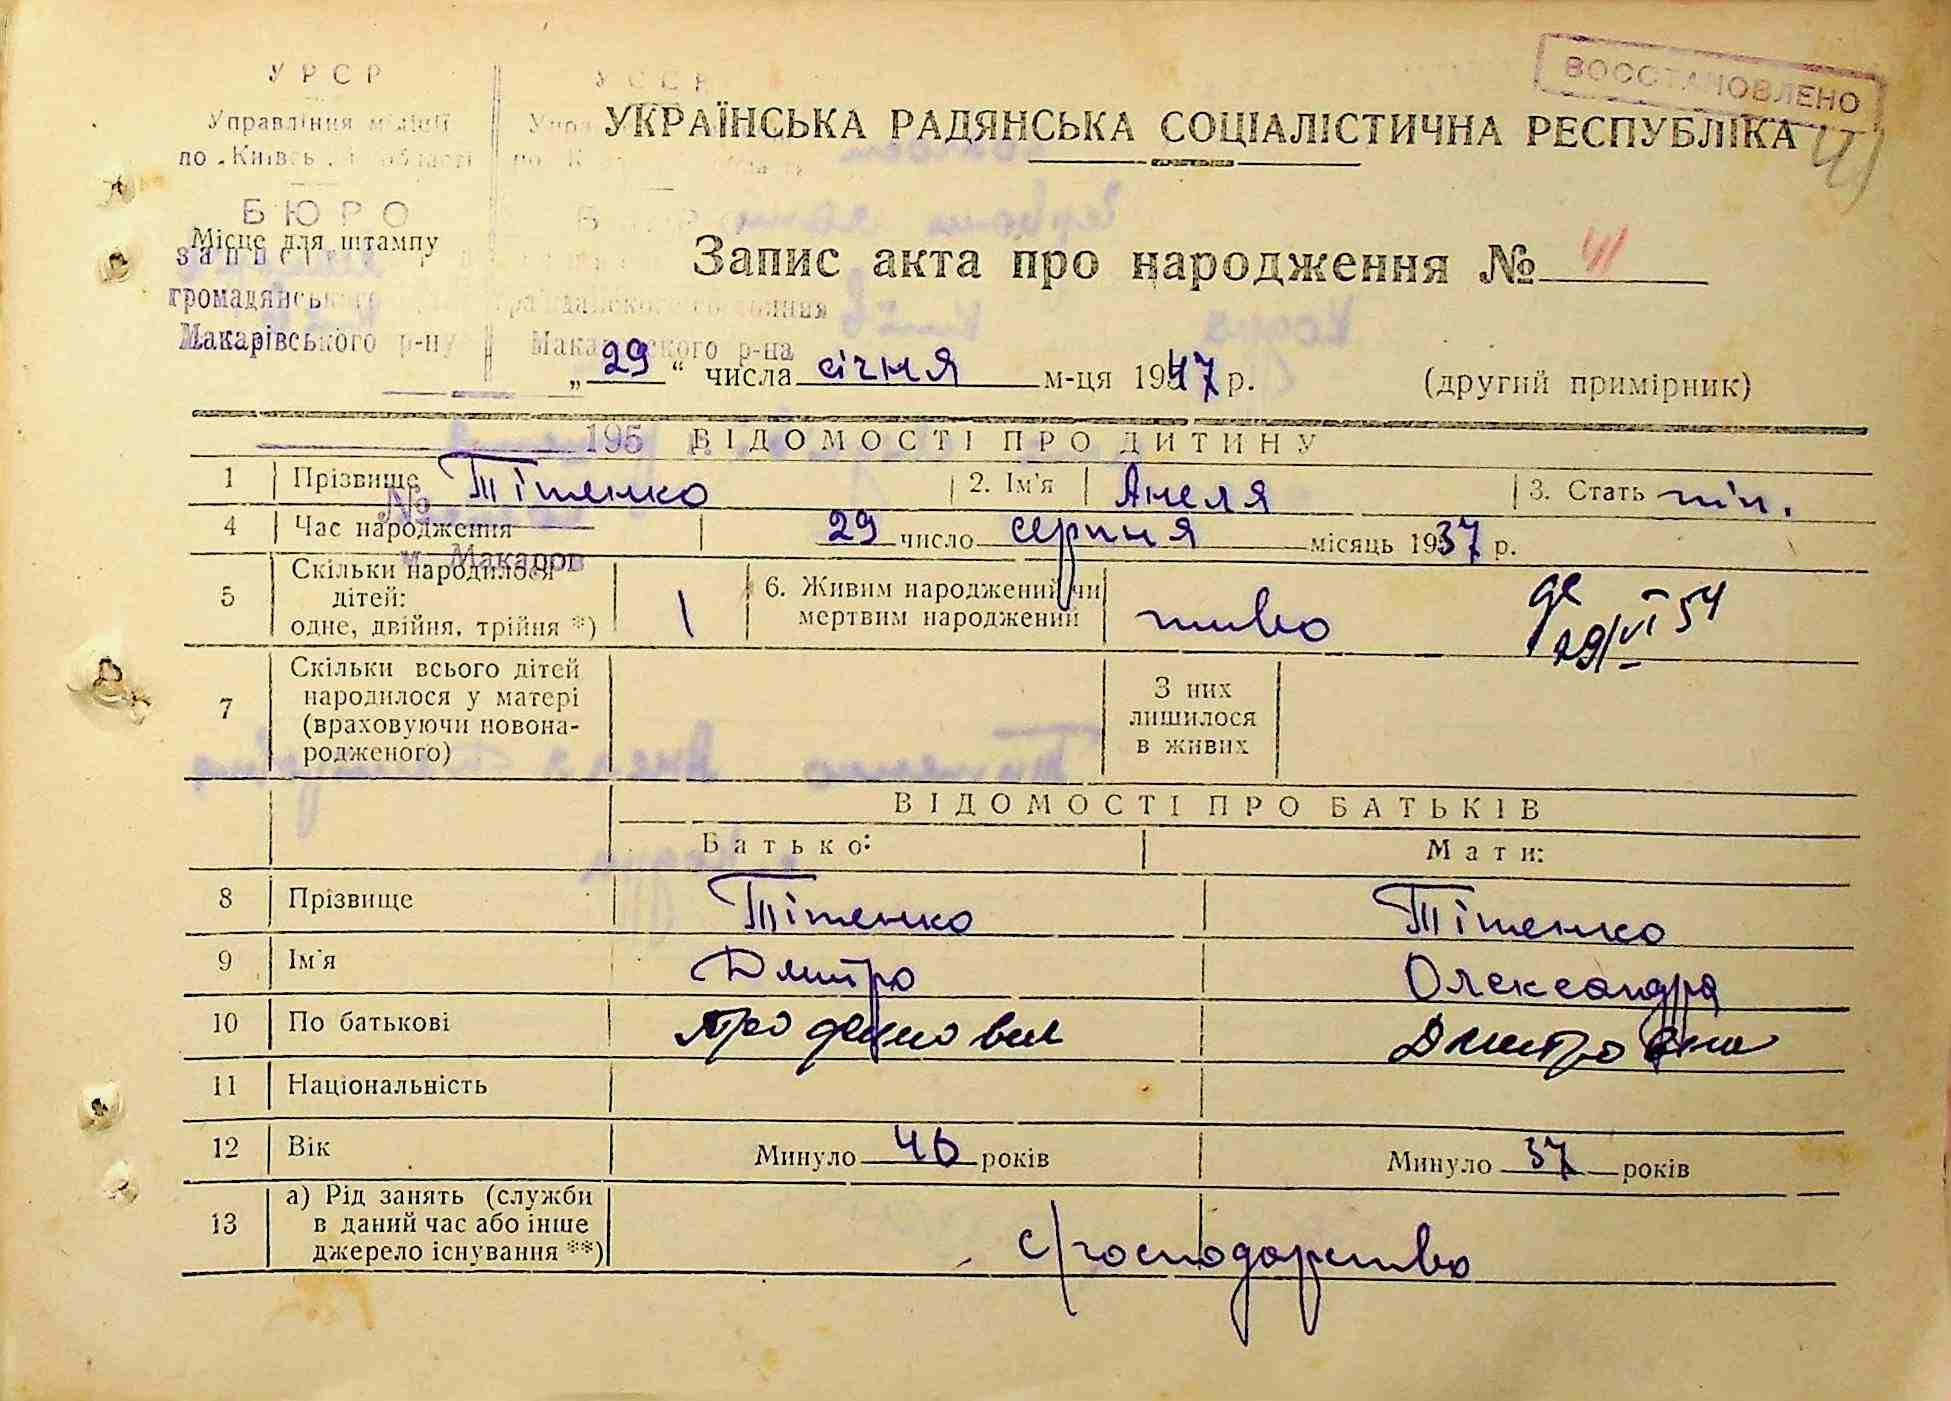 ВОССТАНОВЛЕНО
УРСР
Управління міліції
по Київс області
БЮРО
запи
громадянського
Макарівського р-ну
Мака ского р-на
195
№
м. Макаров
УКРАЇНСЬКА РАДЯНСЬКА СОЦІАЛІСТИЧНА РЕСПУБЛІКА
41
Місце для штампу
Запис акта про народження № 41
„29“ числа січня м-ця 1947 р. (другий примірник)
ВІДОМОСТІ ПРО ДИТИНУ
1 Прізвище Тітенко 2. Ім'я Анеля 3. Стать жін.
4 Час народження 29 число серпня місяць 1937 р.
5 Скільки народилося
дітей:
одне, двійня, трійня *) 1
6. Живим народжений чи
мертвим народжений живо
29/VI 54
7 Скільки всього дітей
народилося у матері
(враховуючи новона-
родженого)
З них
лишилося
в живих
ВІДОМОСТІ ПРО БАТЬКІВ
Батько: Мати:
8 Прізвище Тітенко Тітенко
9 Ім'я Дмитро Олександра
10 По батькові Трофимович Дмитровна
11 Національність
12 Вік Минуло 46 років Минуло 37 років
13 а) Рід занять (служби
в даний час або інше
джерело існування **)
с/господарство